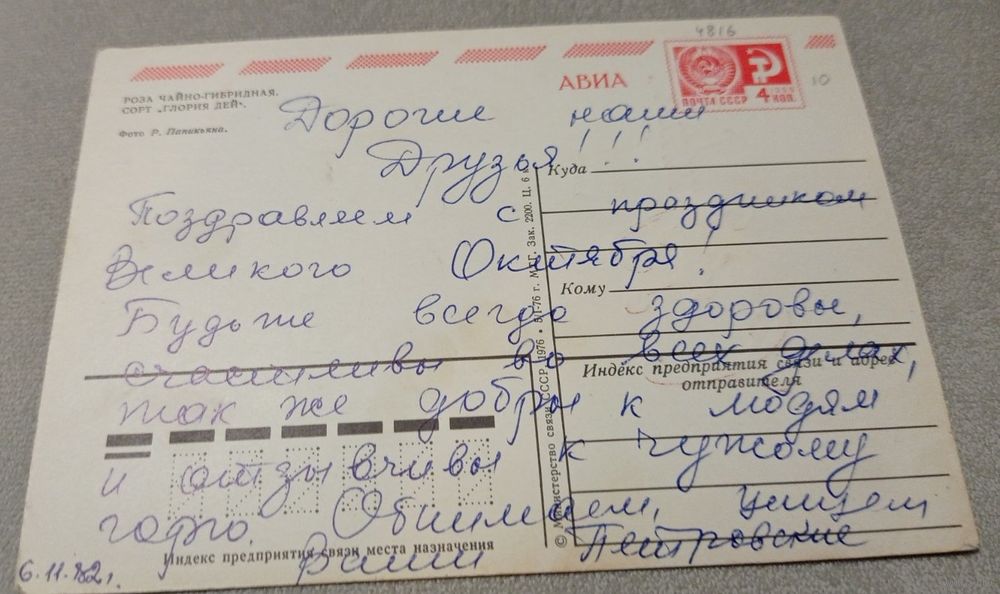 4816
АВИА
ПОЧТА СССР 4 коп.
10
РОЗА ЧАЙНО-ГИБРИДНАЯ.
СОРТ „ГЛОРИЯ ДЕЙ“.
Фото Р. Папикьяна.
Дорогие наши
Друзья!!!
Куда
Поздравляем с праздником
Великого Октября!
Кому
Будьте всегда здоровы,
счастливы во всех делах,
Индекс предприятия связи и адрес
отправителя
так же добры к людям
и отзывчивы к чужому
горю. Обнимаем, целуем
Ваши Петровские
Индекс предприятия связи места назначения
6.11.82г.
© Министерство связи СССР, 1976 • 5/I-76 г. Зак. 2200. Ц. 6 к.